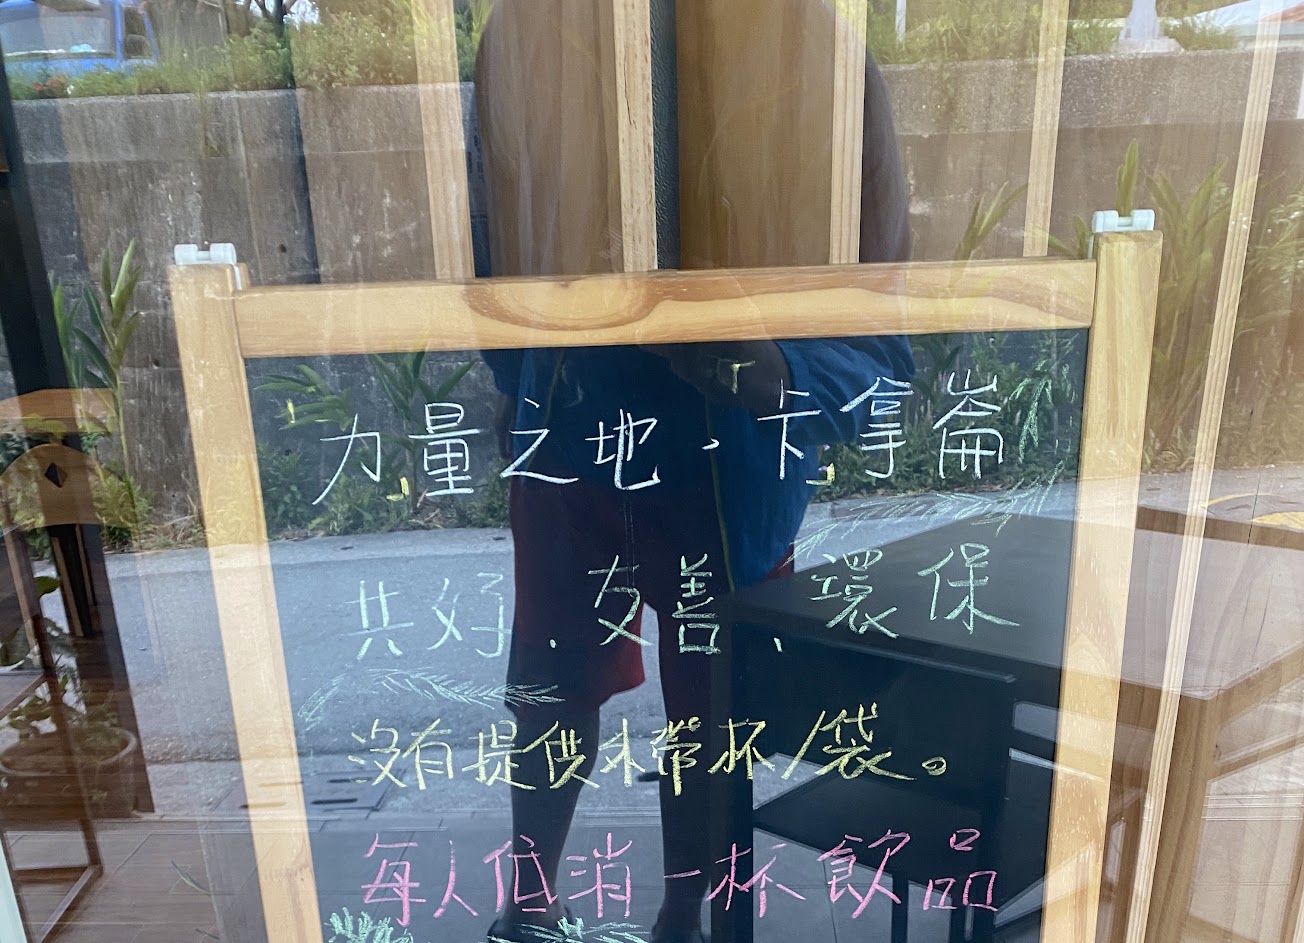 力量之地,卡拿崙
共好、友善、環保
沒有提供外帶杯/袋。
每人低消一杯飲品